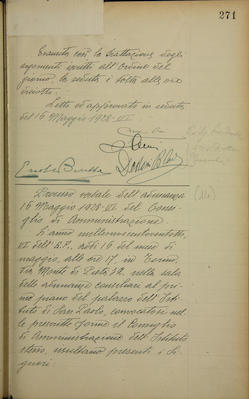 271
Esaurita così la trattazione degli
argomenti iscritti all'Ordine del
giorno, la seduta è tolta alle ore
diciotto.
Letto ed approvato in seduta
del 16 Maggio 1928-VI.
Processo verbale dell'adunanza
16 Maggio 1928-VI del Consi-
glio di Amministrazione
L'anno millenovecentoventotto,
VI dell'E.F., addì 16 del mese di
maggio, alle ore 17, in Torino,
Via Monte di Pietà 32, nella sala
delle adunanze consigliari al pri-
mo piano del palazzo dell'Isti-
tuto di San Paolo, convocatosi nel-
le prescritte forme il Consiglio
di Amministrazione dell'Istituto
stesso, risultano presenti i Si-
gnori: